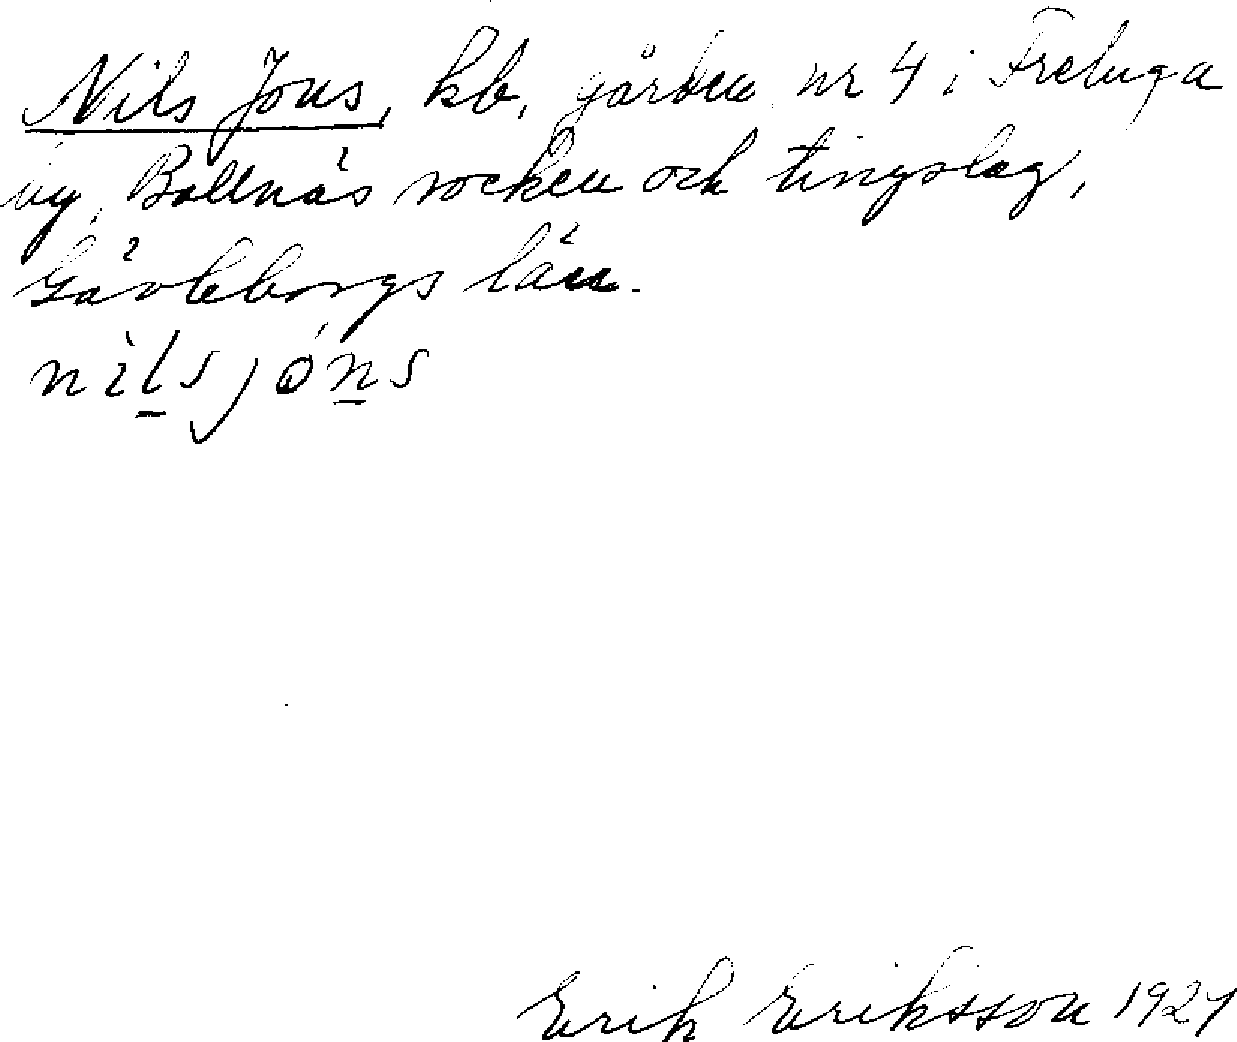 Nils Jons, kb, gården nr 4 i Freluga
by, Bollnäs socken och tingslag,
Gävleborgs län.
nìlsjóns
Erik Eriksson 1927